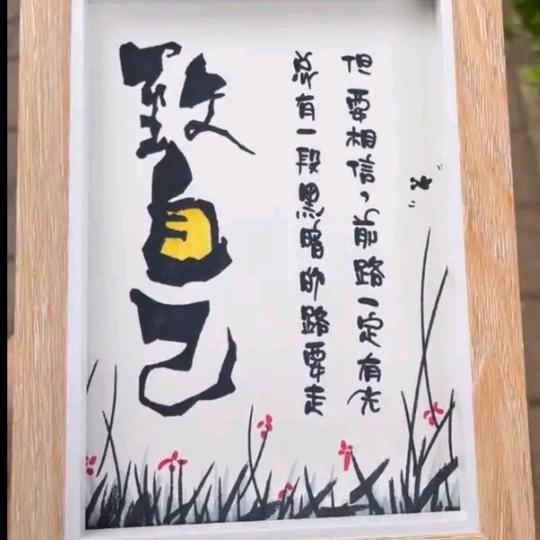 致自己
总有一段黑暗的路要走
但要相信，前路一定有光